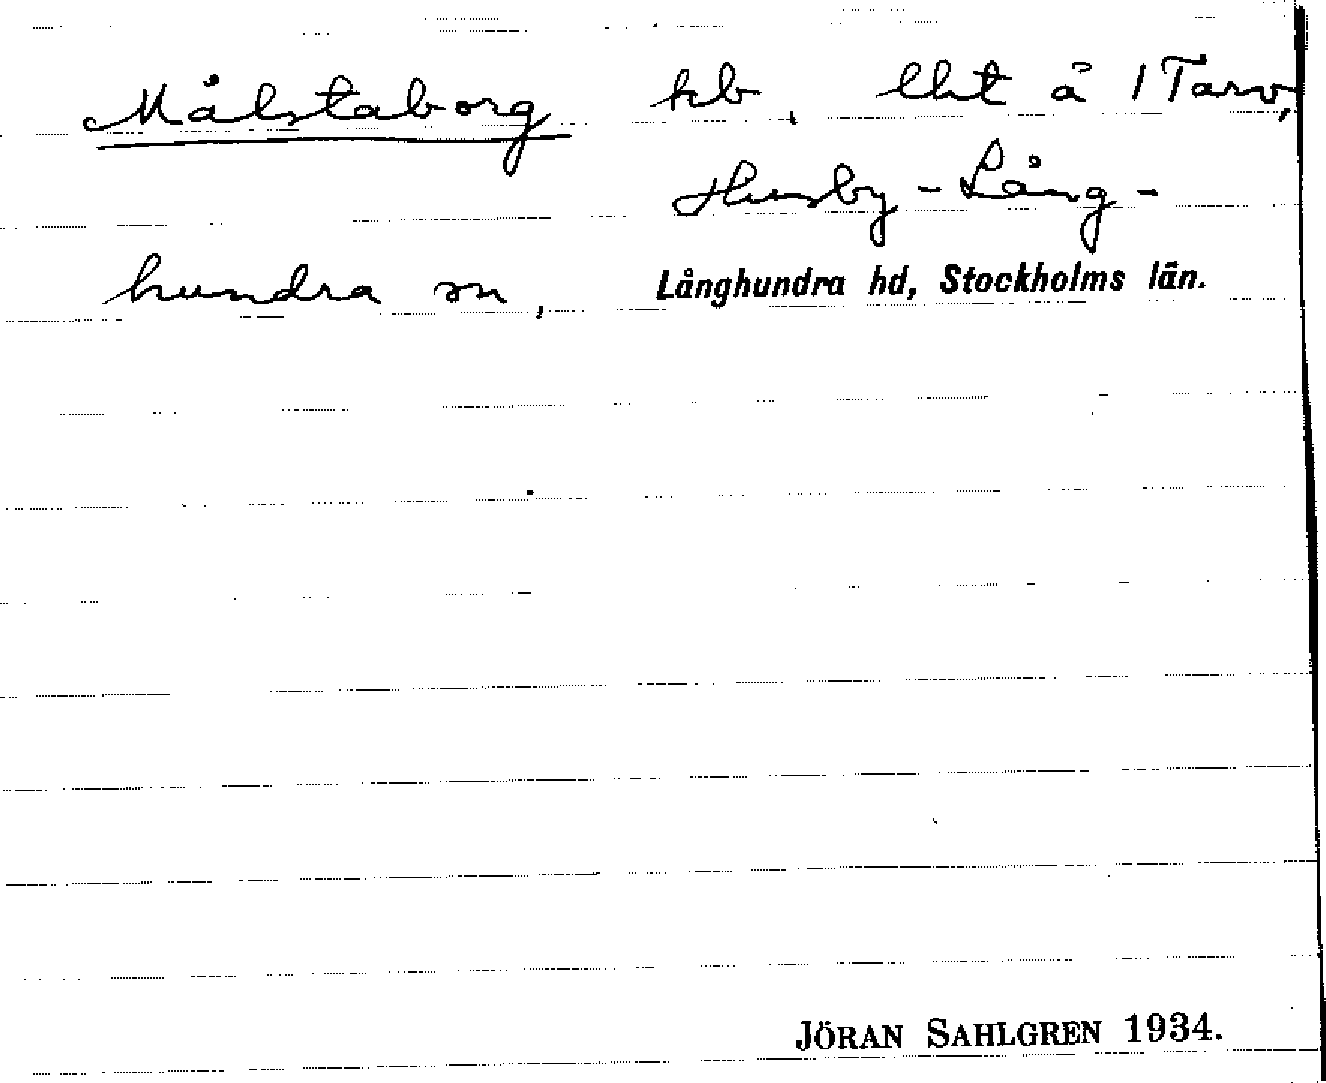 Målstaborg hb, lht å 1 Tarv,
Husby-Lång-
hundra sn, Långhundra hd, Stockholms län.
JÖRAN SAHLGREN 1934.